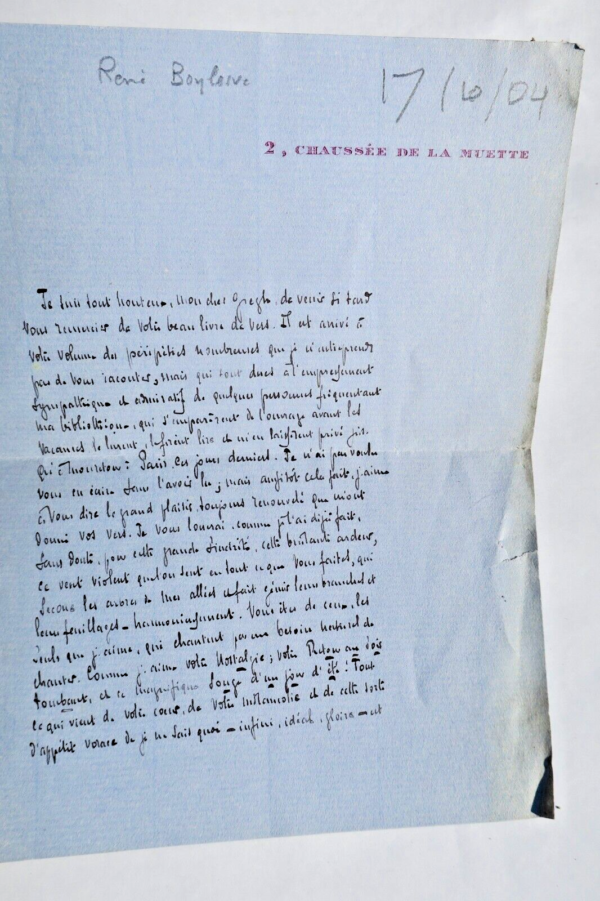 René Boylesve
17/10/04
2, CHAUSSÉE DE LA MUETTE
Je suis tout honteux, mon cher Gregh, de venir si tard
vous remercier de votre beau livre de vers. Il est arrivé à
votre volume des péripéties nombreuses que je n'entreprends
pas de vous raconter, mais qui sont dues à l'empressement
sympathique et admiratif de quelques personnes fréquentant
ma bibliothèque, qui s'emparèrent de l'ouvrage avant les
vacances, le lurent, le firent lire et m'en laissèrent privé
Paris, ces jours derniers. Je n'ai pas voulu
vous en écrire sans l'avoir lu ; mais aussitôt cela fait, j'aime
à vous dire le grand plaisir, toujours renouvelé que m'ont
donné vos vers. Je vous louerai, comme je l'ai déjà fait,
sans doute, pour cette grande sincérité, cette brûlante ardeur,
ce vent violent qu'on sent en tout ce que vous faites, qui
secoue les arbres de mes allées et fait gémir leurs branches et
leurs feuillages - harmonieusement. Vous êtes de ceux, les
seuls que j'aime, qui chantent par un besoin naturel de
chanter. Comme j'aime votre Nostalgie ; votre Retour au soir
tombant, et ce magnifique Songe d'un jour d'été ! Tout
ce qui vient de votre cœur, de votre mélancolie et de cette sorte
d'appétit vorace de je ne sais quoi - infini, idéal, gloire - est